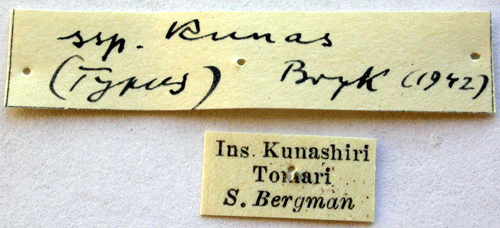 ssp. Kunas
(Typus) Bryk (1942)
Ins. Kunashiri
Tomari
S. Bergman